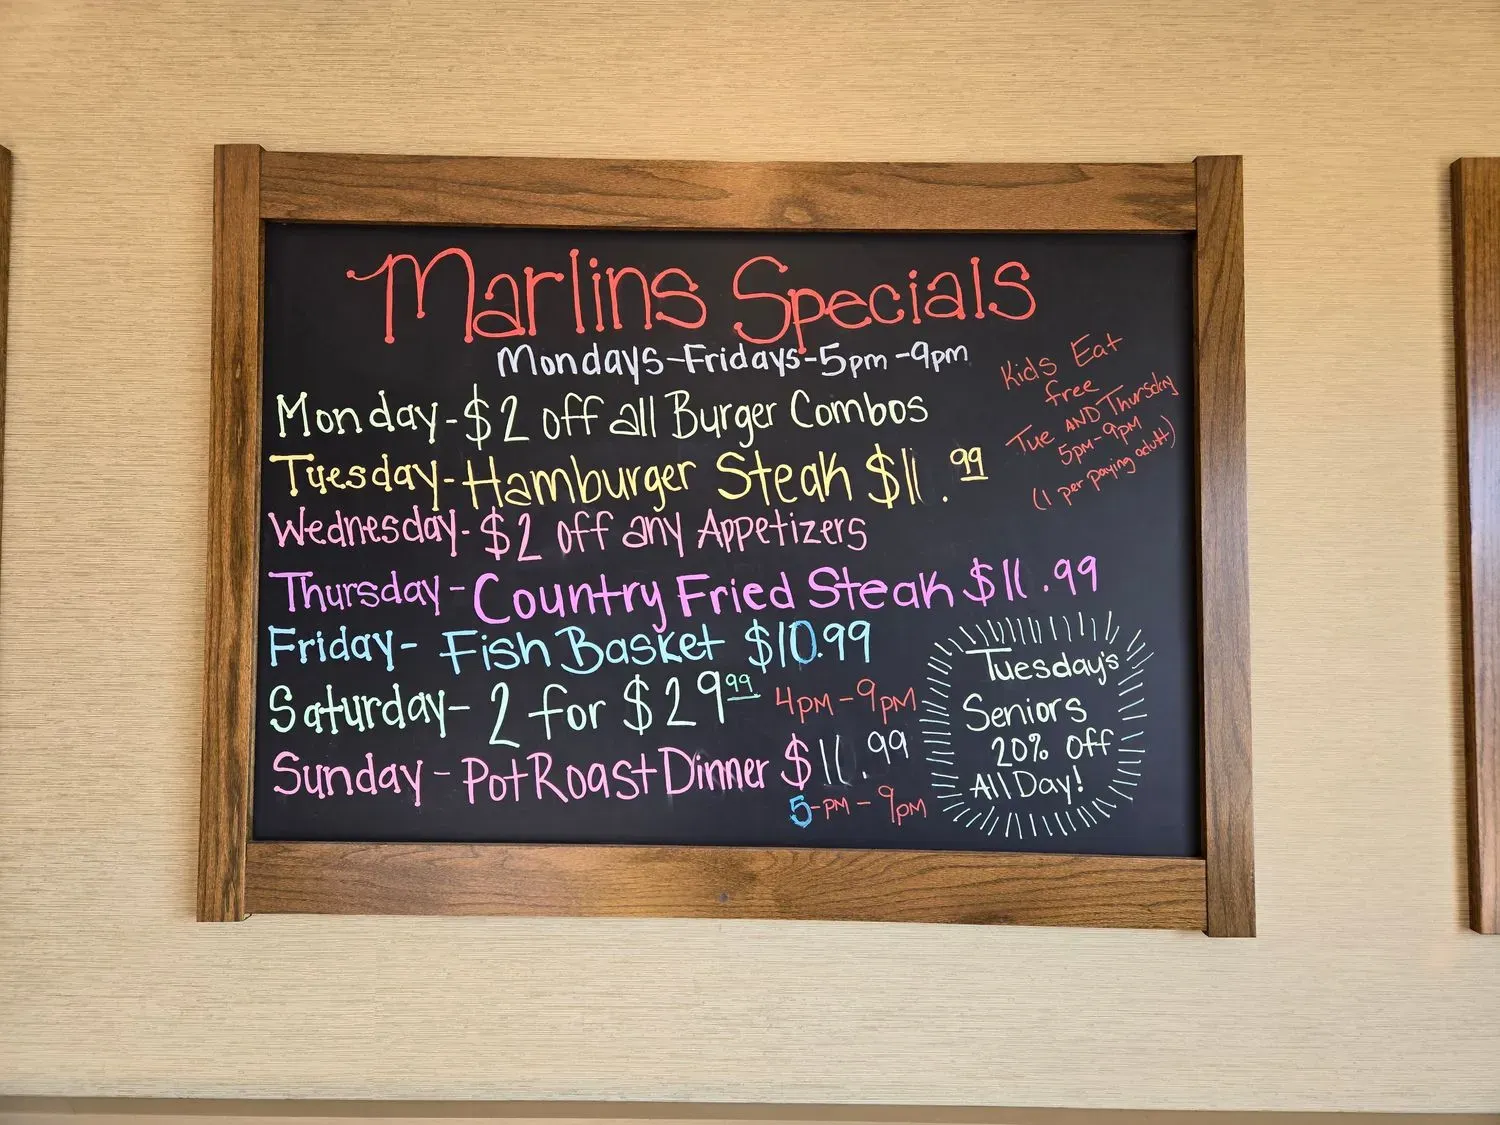 Marlins Specials
Mondays-Fridays-5pm-9pm
Monday-$2 off all Burger Combos
Tuesday-Hamburger Steak $11.99
Wednesday-$2 off any Appetizers
Thursday-Country Fried Steak $11.99
Friday-Fish Basket $10.99
Saturday-2 for $29.99 4pm-9pm
Sunday-Pot Roast Dinner $11.99
5-pm-9pm
Kids Eat
free
Tue AND Thursday
5pm-9pm
(1 per paying adult)
Tuesday's
Seniors
20% Off
All Day!